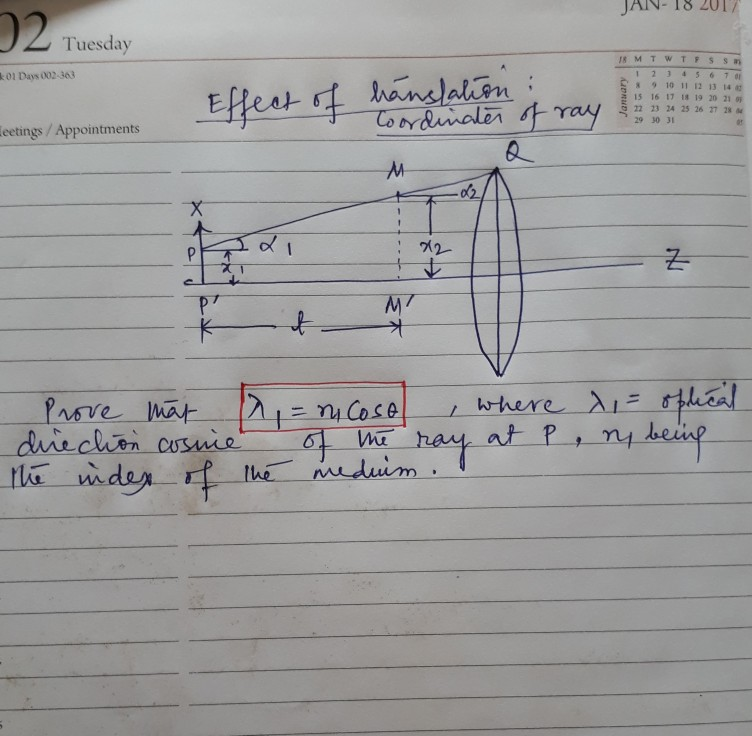 JAN- 18 2017
02 Tuesday
k 01 Days 002-363
Meetings / Appointments
January
18 M T W T F S S
1 2 3 4 5 6 7 01
8 9 10 11 12 13 14 02
15 16 17 18 19 20 21 03
22 23 24 25 26 27 28 04
29 30 31 05
Effect of translation :
Coordinates of ray
Q
M
α2
X
P
α1
x1
x2
Z
P'
M'
t
Prove that λ1 = n1 Cosθ , where λ1 = optical
direction cosine of the ray at P , n1 being
the index of the medium .